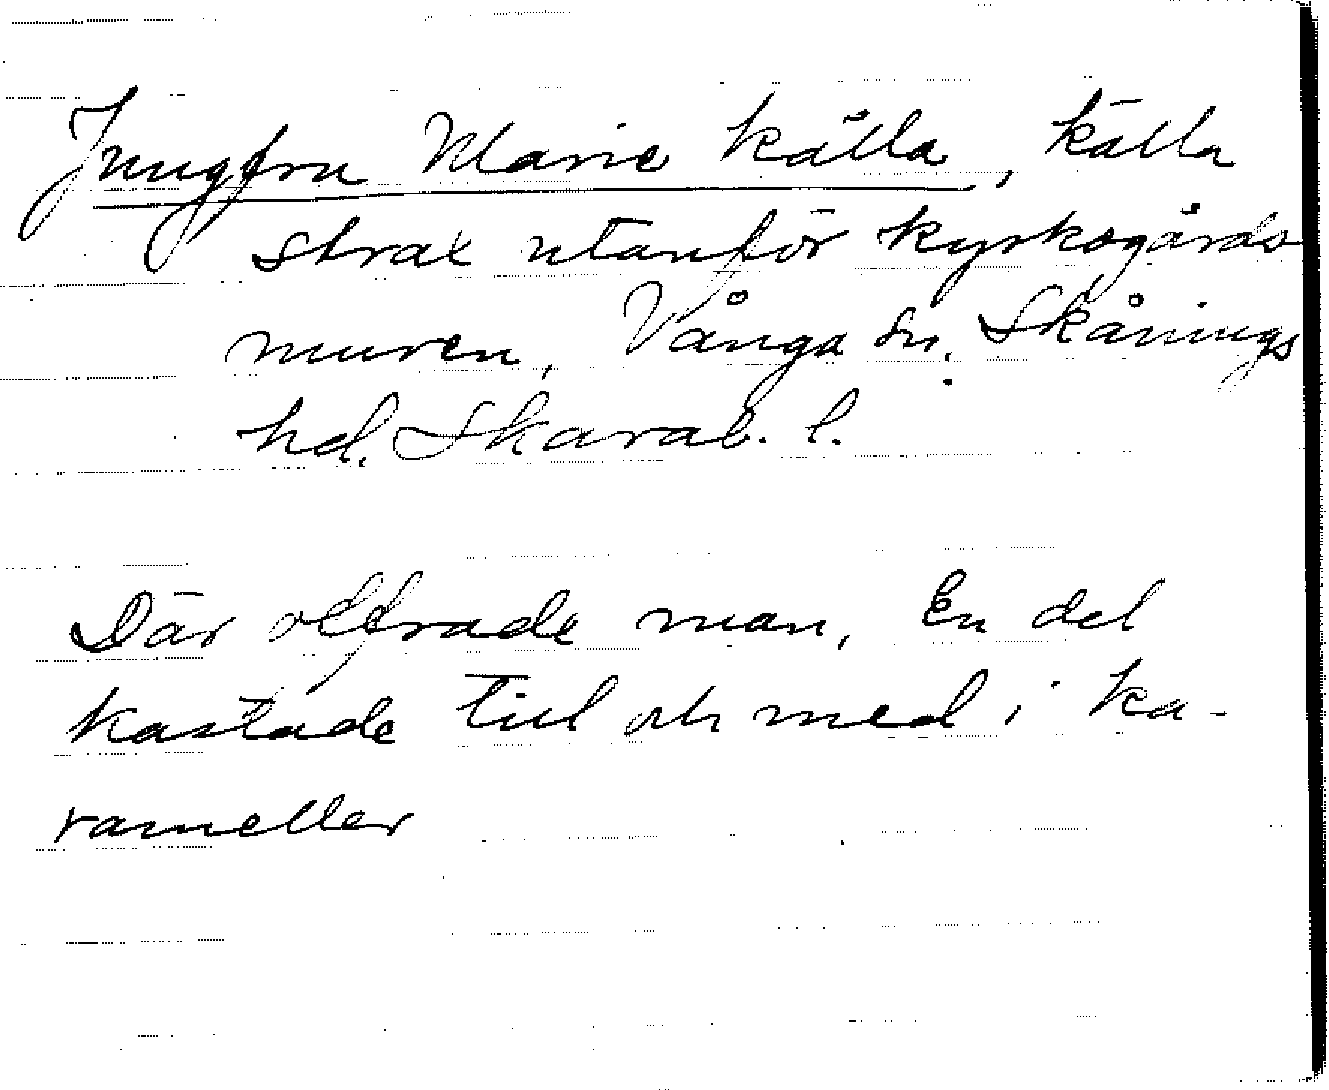 Jungfru Marie källa, källa
strax utanför kyrkogårds
muren, Vånga sn. Skånings
hd. Skarab. l.
Där offrade man, En del
kastade till och med i ka-
rameller